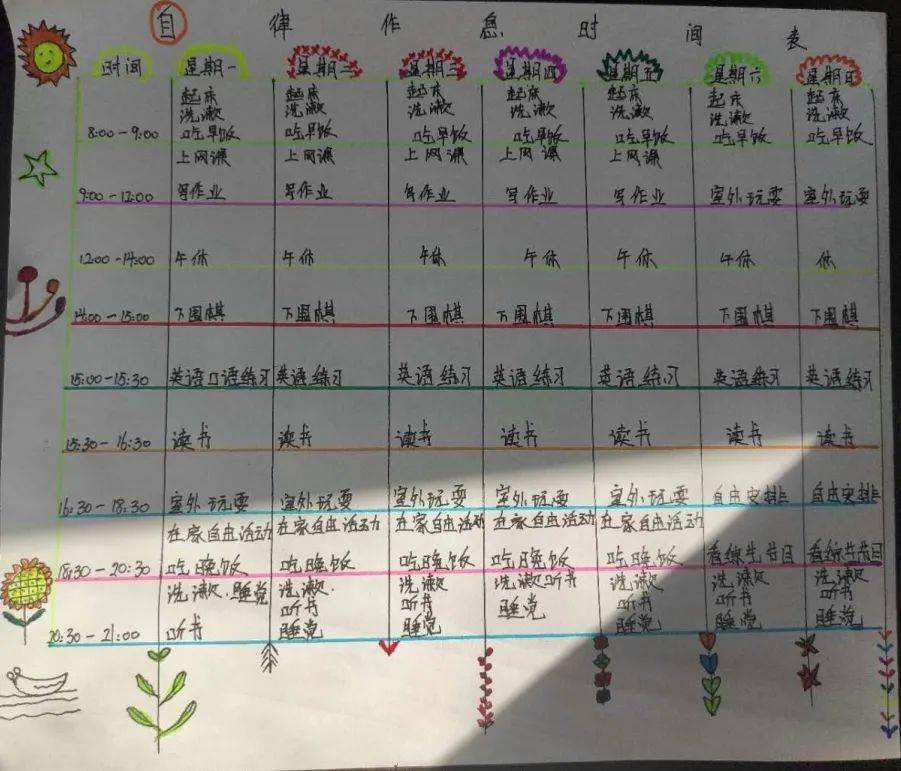 自律作息时间表
时间 星期一 星期二 星期三 星期四 星期五 星期六 星期日
起床 起床 起床 起床 起床 起床 起床
洗漱 洗漱 洗漱 洗漱 洗漱 洗漱 洗漱
8:00-9:00 吃早饭 吃早饭 吃早饭 吃早饭 吃早饭 吃早饭 吃早饭
上网课 上网课 上网课 上网课 上网课
9:00-12:00 写作业 写作业 写作业 写作业 写作业 室外玩耍 室外玩耍
12:00-14:00 午休 午休 午休 午休 午休 午休 休
14:00-15:00 下围棋 下围棋 下围棋 下围棋 下围棋 下围棋 下围棋
15:00-15:30 英语口语练习 英语练习 英语练习 英语练习 英语练习 英语练习 英语练习
15:30-16:30 读书 读书 读书 读书 读书 读书 读书
16:30-18:30 室外玩耍 室外玩耍 室外玩耍 室外玩耍 室外玩耍 自由安排 自由安排
在家自由活动 在家自由活动 在家自由活动 在家自由活动 在家自由活动
18:30-20:30 吃晚饭 吃晚饭 吃晚饭 吃晚饭 吃晚饭 看综艺节目 看综艺节目
洗漱.睡觉 洗漱. 洗漱 洗漱听书 洗漱 洗漱 洗漱
听书 听书 睡觉 听书 听书 听书
20:30-21:00 听书 睡觉 睡觉 睡觉 睡觉 睡觉